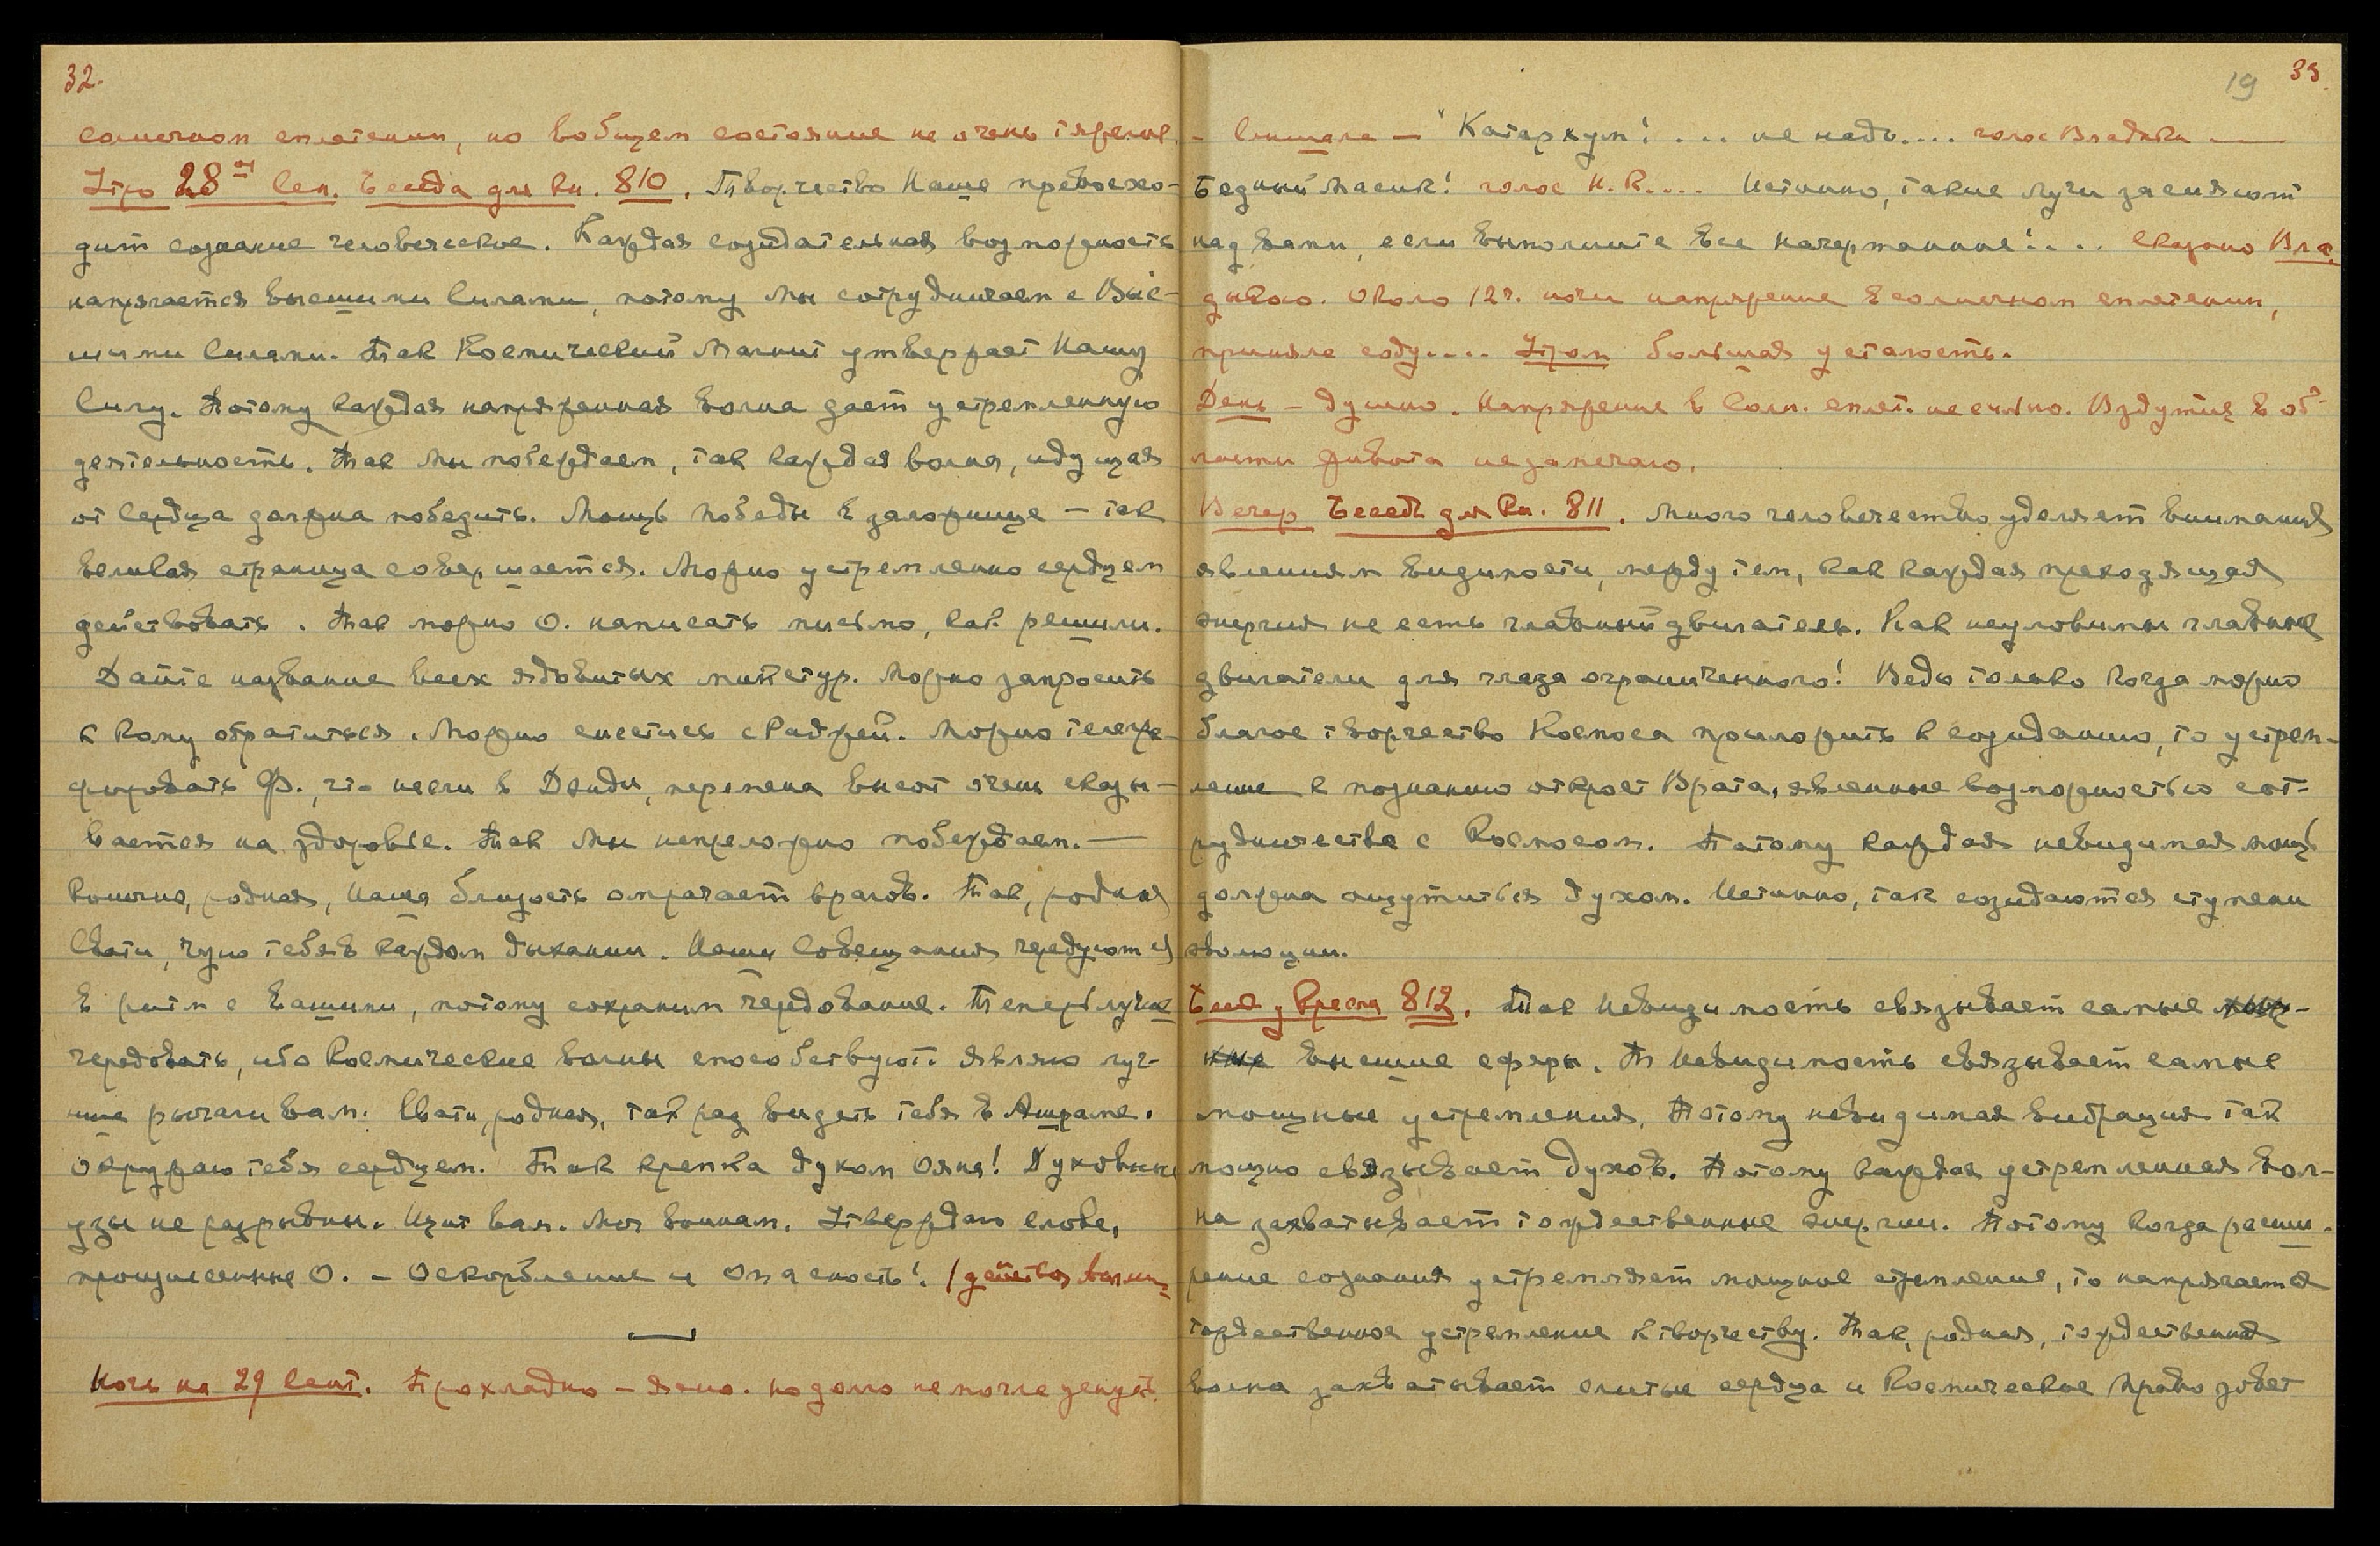 32.
солнечном сплетении, но вобщем состояние не очень тяжелое.
Утро 28ое Сен. Беседа для Кн. 810. Творчество Наше превосхо-
дит сознание человеческое. Каждая созидательная возможность
напрягается высшими Силами, потому мы сотрудничаем с Выс-
шими Силами. Так Космический Магнит утверждает Нашу
Силу. Потому каждая напряженная волна дает устремленную
деятельность. Так Мы побеждаем, так каждая волна, идущая
от Сердца должна победить. Мощь победы в залоржице — так
великая страница совершается. Можно устремленно сердцем
действовать. Так можно О. написать письмо, как решили.
Дайте название всех ядовитых микстур. Можно запросить
к кому обратиться. Можно снестись с Раджей. Можно телегра-
фировать Ф., что если в Дэнди, перемена высот очень сказы-
вается на здоровье. Так Мы непреложно побеждаем. —
Конечно, родная, Наша близость омрачает врагов. Так, родная
Свати, чую тебя в каждом дыхании. Наши Совещания чередуются
в ритм с вашими, потому сохраним чередование. Теперь лучше
чередовать, ибо Космические волны способствуют. Являю луч-
шие рычаги вам. Свати, родная, так рад видеть тебя в Ашраме.
Окружаю тебя сердцем. Так крепка духом Ояна! Духовные
узы не разрывны. Щит вам. Меч воинам. Утверждаю слова,
произнесенные О. — Оскорбление и Опасность!. (действ.
Ночь на 29 Сент. Прохладно — ясно. но долго не могла уснуть.
19 33.
- Слышала — "Катархум! .... не надо.... голос Владыки —
Бедный Масик! голос Н.К.... Истинно, такие лучи засияют
над вами, если выполните все начертанное!.... сказано Вла-
дыкою. Около 12ч. ночи напряжение в солнечном сплетении,
приняла соду.... Утром большая усталость.
День — душно. Напряжение в Солн. сплет. не сильно. Вздутия в об-
ласти живота не замечаю.
Вечер Беседа для Кн. 811. Много человечество уделяет внимания
явлениям видимости, между тем, как каждая преходящая
энергия не есть главный двигатель. Как неуловимы главные
двигатели для глаза ограниченного! Ведь только когда можно
благое творчество Космоса приложить к созиданию, то устрем-
ление к познанию откроет Врата, явленные возможностью сот-
рудничества с Космосом. Потому каждая невидимая мощь
должна ощутиться духом. Истинно, так созидаются ступени
эволюции.
Бесед у Кресла 812. Так Невидимость связывает самые
высшие сферы. Т Невидимость связывает самые
мощные устремления. Потому невидимая вибрация так
мощно связывает Духов. Потому каждая устремленная вол-
на захватывает тождественные энергии. Потому когда расши-
рение сознания устремляет мощное стремление, то напрягается
тождественное устремление к творчеству. Так, родная, тождественная
волна захватывает слитые сердца и Космическое Право зовет